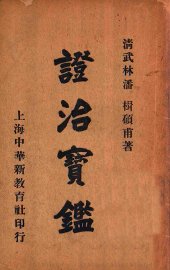 清武林潘楫碩甫著
證治寶鑑
上海中華新教育社印行